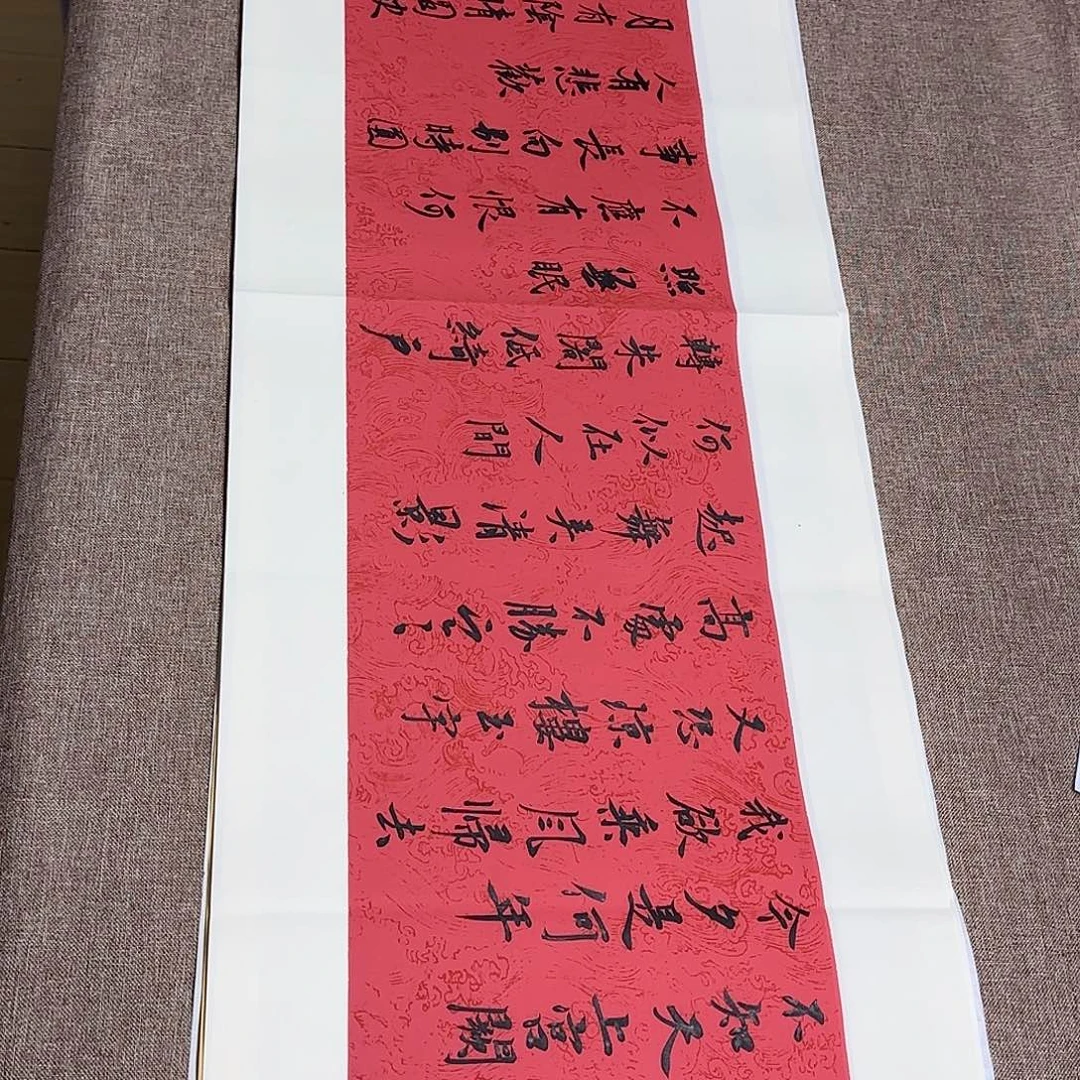 不知天上宮闕
今夕是何年
我欲乘風歸去
又恐琼樓玉宇
高處不勝寒
起舞弄清影
何似在人間
轉朱閣低綺戶
照無眠
不應有恨何
事長向別時圓
人有悲歡
月有陰晴圓